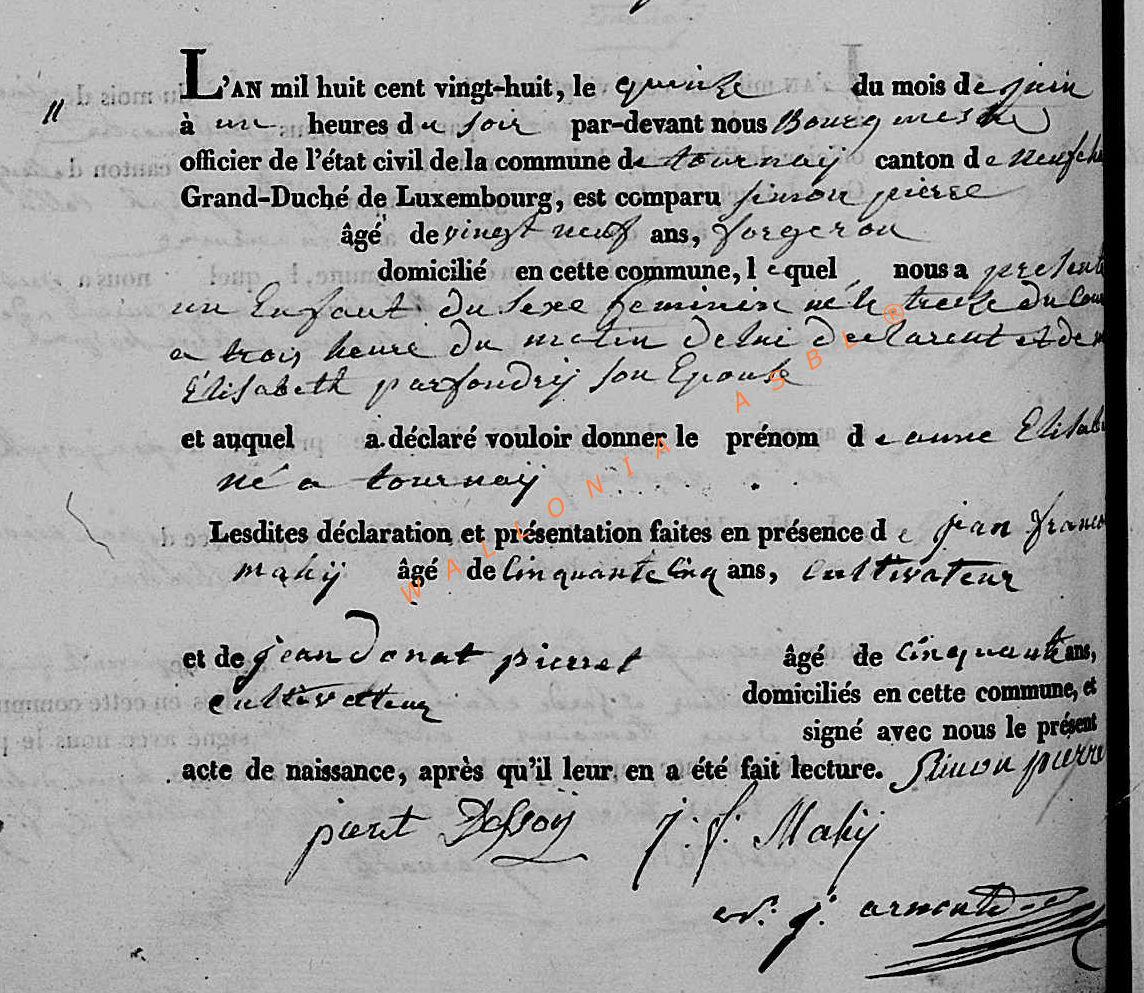 L'AN mil huit cent vingt-huit, le quinze du mois de juin
à un heures du soir par-devant nous Bourgmestre
officier de l'état civil de la commune de tournaÿ canton de neufch
Grand-Duché de Luxembourg, est comparu simon pierre
âgé de vingt neuf ans, forgeron
domicilié en cette commune, lequel nous a presenté
un Enfant du sexe feminin né le treize du cour
a trois heure du matin delui declarent et de
Elisabeth parfondrÿ son Epouse
et auquel a déclaré vouloir donner le prénom de anne Elisab
né a tournaÿ
Lesdites déclaration et présentation faites en présence de jean franco
mahÿ âgé de cinquante cinq ans, cultivateur
et de jean donat pierret âgé de cinquante ans,
cultivateur domiciliés en cette commune, et
signé avec nous le présent
acte de naissance, après qu'il leur en a été fait lecture. Simon pierre
J. f. Mahÿ
WALLONIA ASBL ®